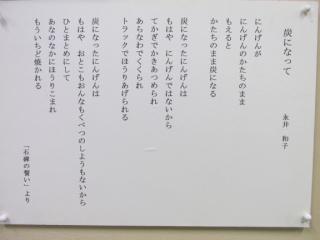 炭になって
永井 和子
にんげんが
にんげんのかたちのまま
もえると
かたちのまま炭になる
炭になったにんげんは
もはや にんげんではないから
てかぎでかきあつめられ
あらなわでくくられ
トラックでほうりあげられる
炭になったにんげんは
もはや おとこもおんなもくべつのしようもないから
ひとまとめにして
あなのなかにほうりこまれ
もういちど焼かれる
「石碑の誓い」より